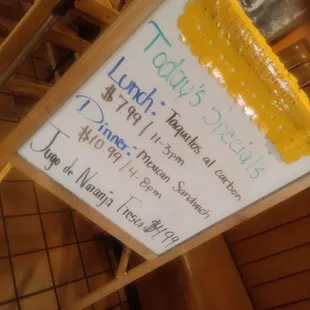 Today's Specials
Lunch: Taquitos al carbon
$7.99 / 11-3pm
Dinner: Mexican Sandwich
$10.99 / 4-8pm
Jugo de Naranja Fresco $4.99